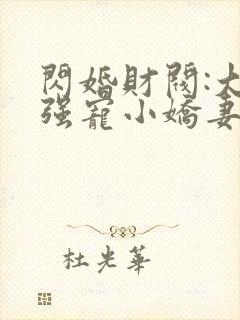 閃婚財閥:大
强寵小嬌妻
杜光華